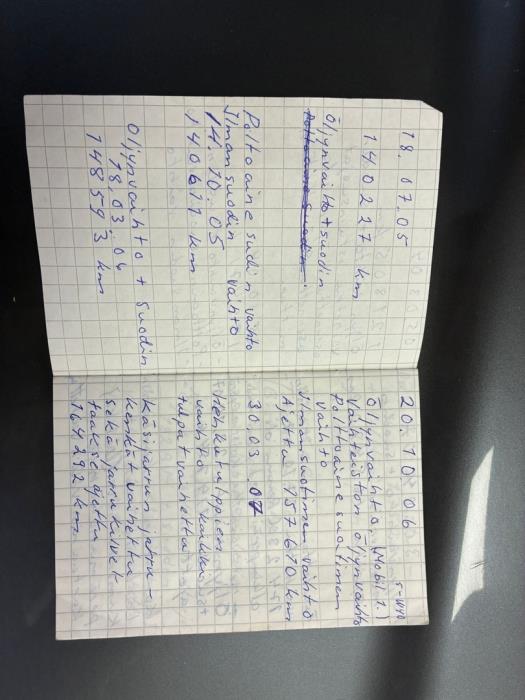 18.07.05
140227 km
Öljynvaihto + suodin
Polttoaine suodin
Polttoaine sudin vaihto
Ilmansuodin vaihto
14.10.05
140611 km
Öljynvaihto + Suodin
18.03.06
148593 km
20.10.06
5-W40
Öljynvaihto (Mobil 1.)
Vaihteiston öljynvaihto
Polttoainesuotimen
vaihto
Ilmansuotimen vaihto
Ajettu 157670 km
30.03.07
Hehkutulppien
vaihto
tulpat vaihettu
Käsijarrun jarru-
kengät vaihettu
sekä jarrukilvet
taakse ajettu
164292 km